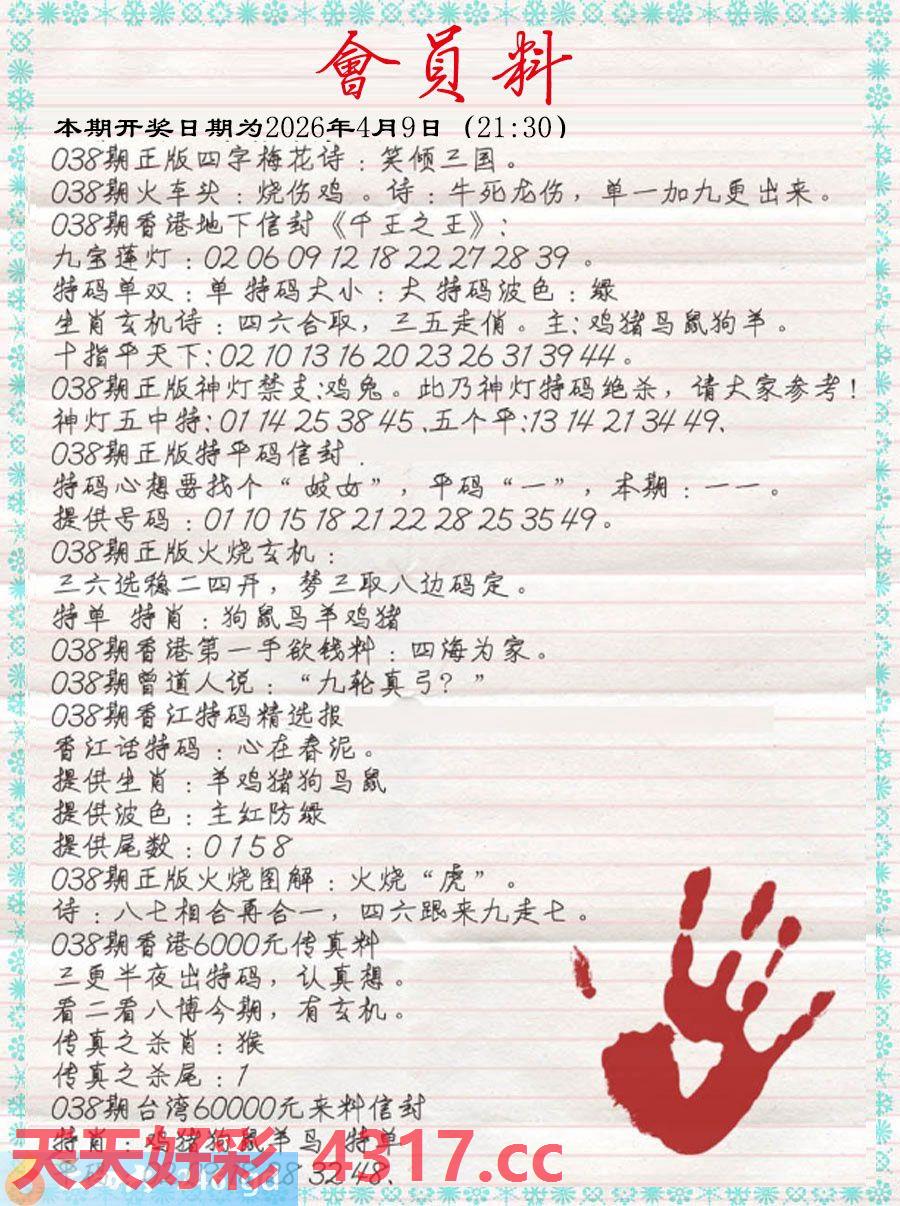 會員料
本期开奖日期为2026年4月9日（21:30）
038期正版四字梅花诗：笑倾三国。
038期火车头：烧伤鸡 。诗：牛死龙伤，单一加九更出来。
038期香港地下信封《千王之王》：
九宝莲灯：02 06 09 12 18 22 27 28 39 。
特码单双：单 特码大小：大 特码波色：绿
生肖玄机诗：四六合取，三五走俏。主：鸡猪马鼠狗羊。
十指平天下：02 10 13 16 20 23 26 31 39 44 。
038期正版神灯禁支：鸡兔。此乃神灯特码绝杀，请大家参考！
神灯五中特：01 14 25 38 45 、五个平：13 14 21 34 49、
038期正版特平码信封 .
特码心想要找个“ 妓女”，平码“一”，本期：一一。
提供号码：01 10 15 18 21 22 28 25 35 49。
038期正版火烧玄机：
三六选稳二四开，梦三取八边码定。
特单 特肖：狗鼠马羊鸡猪
038期香港第一手欲钱料：四海为家。
038期曾道人说：“九轮真弓？”
038期香江特码精选报
香江话特码：心在春泥。
提供生肖：羊鸡猪狗马鼠
提供波色：主红防绿
提供尾数：0 1 5 8
038期正版火烧图解：火烧“虎”。
诗：八七相合再合一，四六跟来九走七。
038期香港6000元传真料
三更半夜出特码，认真想。
看二看八博今期，有玄机。
传真之杀肖：猴
传真之杀尾：1
038期台湾60000元来料信封
特肖：鸡猪狗鼠羊马 特单
天天好彩 4317.cc
28 32 48、